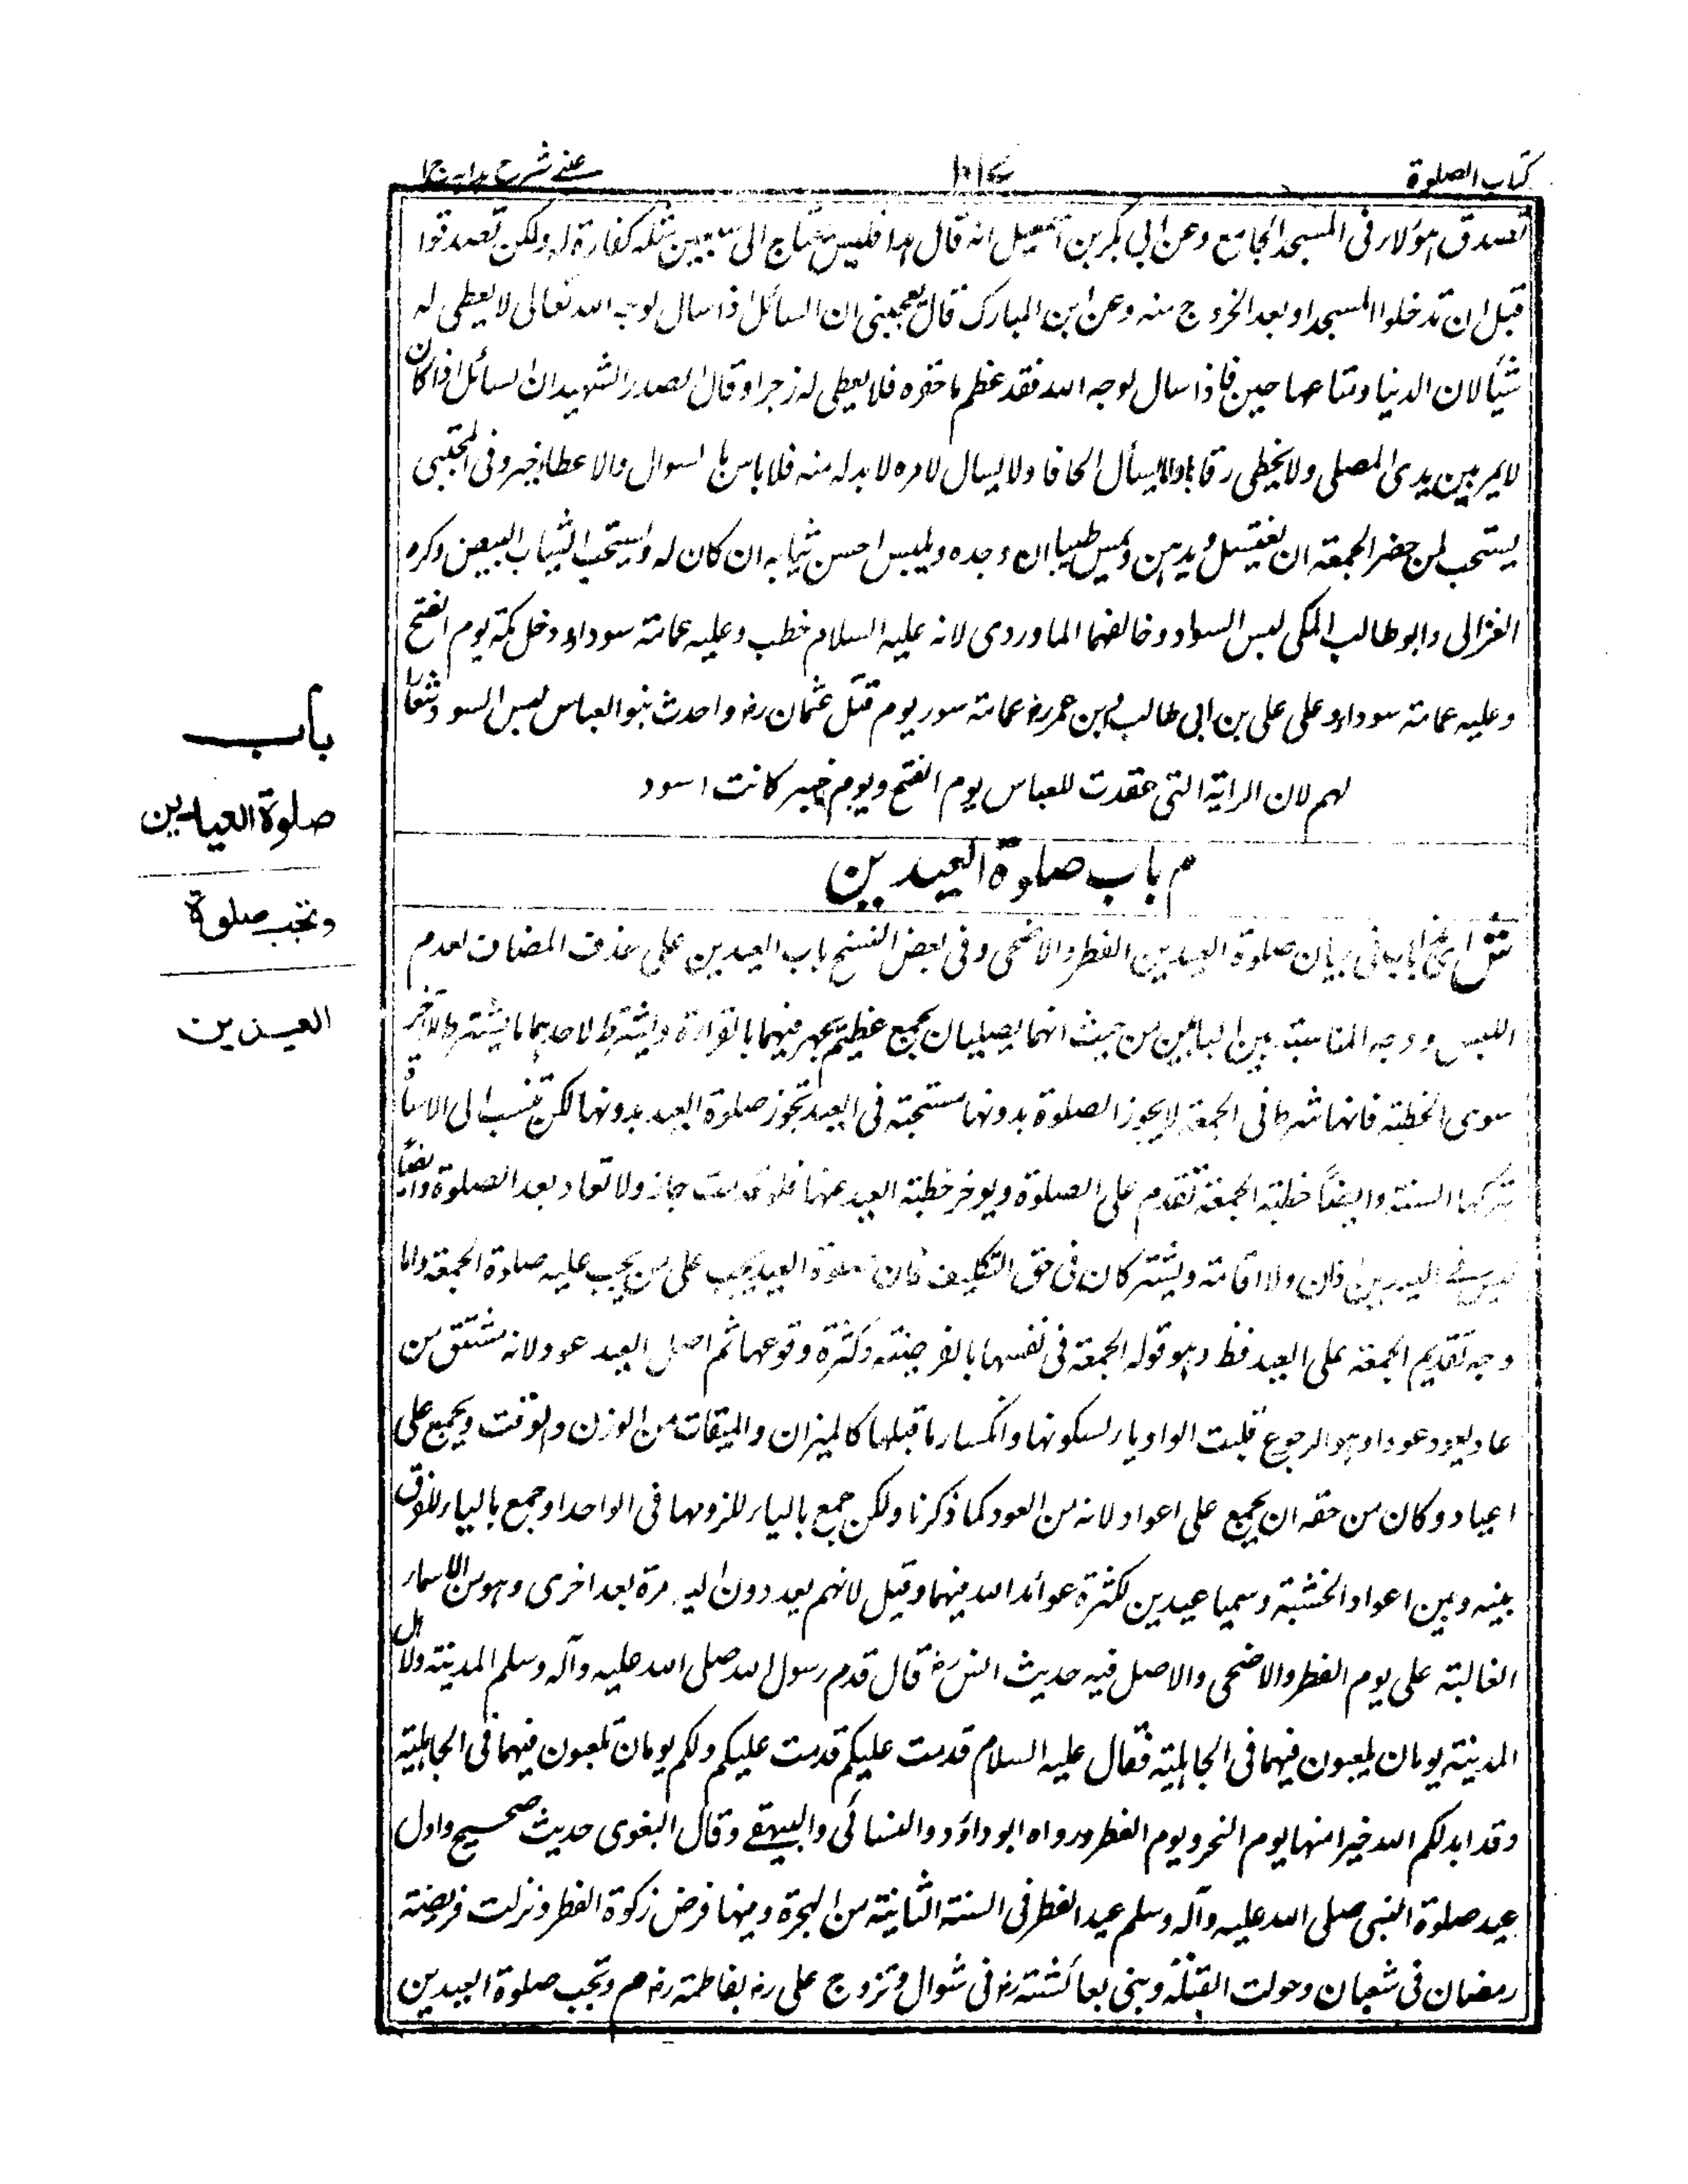 كتاب الصلوة
عينى شرح هدايه ج١
تصدق هؤلاء فى المسجد الجامع وعن ابى بكر بن اسمعيل انه قال هذا فليس يحتاج الى سبعين مثله كفارة له ولكن تصدقوا
قبل ان تدخلوا المسجد او بعد الخروج منه وعن ابن المبارك قال يعجبنى ان السائل اذا سال لوجه الله تعالى لا يعطى له
شيئا لان الدنيا ومتاعها حين فاذا سال لوجه الله فقد عظم ما حقره فلا يعطى له زجرا وقال الصدر الشهيد ان السائل اذا كان
لا يمر بين يدى المصلى ولا يخطى رقابا ولا يسأل الحافا ولا يسال لامره لا بد له منه فلا باس بالسوال والاعطاء خير وفى المجتبى
يستحب لمن حضر الجمعة ان يغتسل ويدهن ويمس طيبا ان وجده ويلبس احسن ثيابه ان كان له ويستحب الثياب البيض وكره
الغزالى وابو طالب المكى لبس السواد وخالفهما الماوردى لانه عليه السلام خطب وعليه عمامة سوداء ودخل مكة يوم الفتح
وعليه عمامة سوداء وعلى على بن ابى طالب وابن عمر رض عمامة سود يوم قتل عثمان رض واحدث بنو العباس لبس السود شعارا
لهم لان الراية التى عقدت للعباس يوم الفتح ويوم خيبر كانت اسود
م باب صلوة العيدين
باب
صلوة العيدين
وتجب صلوة
العيدين
ش اى هذا باب فى بيان صلوة العيدين الفطر والاضحى وفى بعض النسخ باب العيدين على حذف المضاف لعدم
اللبس ووجه المناسبة بين البابين من حيث انهما يصليان بجمع عظيم يجهر فيهما بالقراءة ويشترط لاحدهما ما يشترط للآخر
سوى الخطبة فانها شرط فى الجمعة لا يجوز الصلوة بدونها مستحبة فى العيد تجوز صلوة العيد بدونها لكن تنسب الى الاساءة
بتركها السنة وايضاً خطبة الجمعة تقدم على الصلوة ويوخر خطبة العيد عنها فلو قدمت جاز ولا تعاد بعد الصلوة وايضاً
ليس فى العيدين اذان ولا اقامة ويشتركان فى حق التكليف فان صلوة العيد يجب على من يجب عليه صلوة الجمعة واما
وجه تقديم الجمعة على العيد فظ وهو قوله الجمعة فى نفسها بالفرضية وكثرة وقوعها ثم اصل العيد عود لانه مشتق من
عاد يعود عودا وهو الرجوع قلبت الواو ياء لسكونها وانكسار ما قبلها كالميزان والميقات من الوزن والوقت ويجمع على
اعياد وكان من حقه ان يجمع على اعواد لانه من العود كما ذكرنا ولكن جمع بالياء للزومها فى الواحد او جمع بالياء للفرق
بينه وبين اعواد الخشبة وسميا عيدين لكثرة عوائد الله فيهما وقيل لانهم يعودون اليه مرة بعد اخرى وهو من الاسماء
الغالبة على يوم الفطر والاضحى والاصل فيه حديث انس رض قال قدم رسول الله صلى الله عليه وآله وسلم المدينة ولاهل
المدينة يومان يلعبون فيهما فى الجاهلية فقال عليه السلام قدمت عليكم قدمت عليكم ولكم يومان تلعبون فيهما فى الجاهلية
وقد ابدلكم الله خيرا منها يوم النحر ويوم الفطر ورواه ابو داؤد والنسائى والبيهقى وقال البغوى حديث صحيح واول
عيد صلوة النبى صلى الله عليه وآله وسلم عيد الفطر فى السنة الثانية من الهجرة ومنها فرض زكوة الفطر ونزلت فريضة
رمضان فى شعبان وحولت القبلة وبنى بعائشة رض فى شوال وتزوج على رض بفاطمة رض م وتجب صلوة العيدين